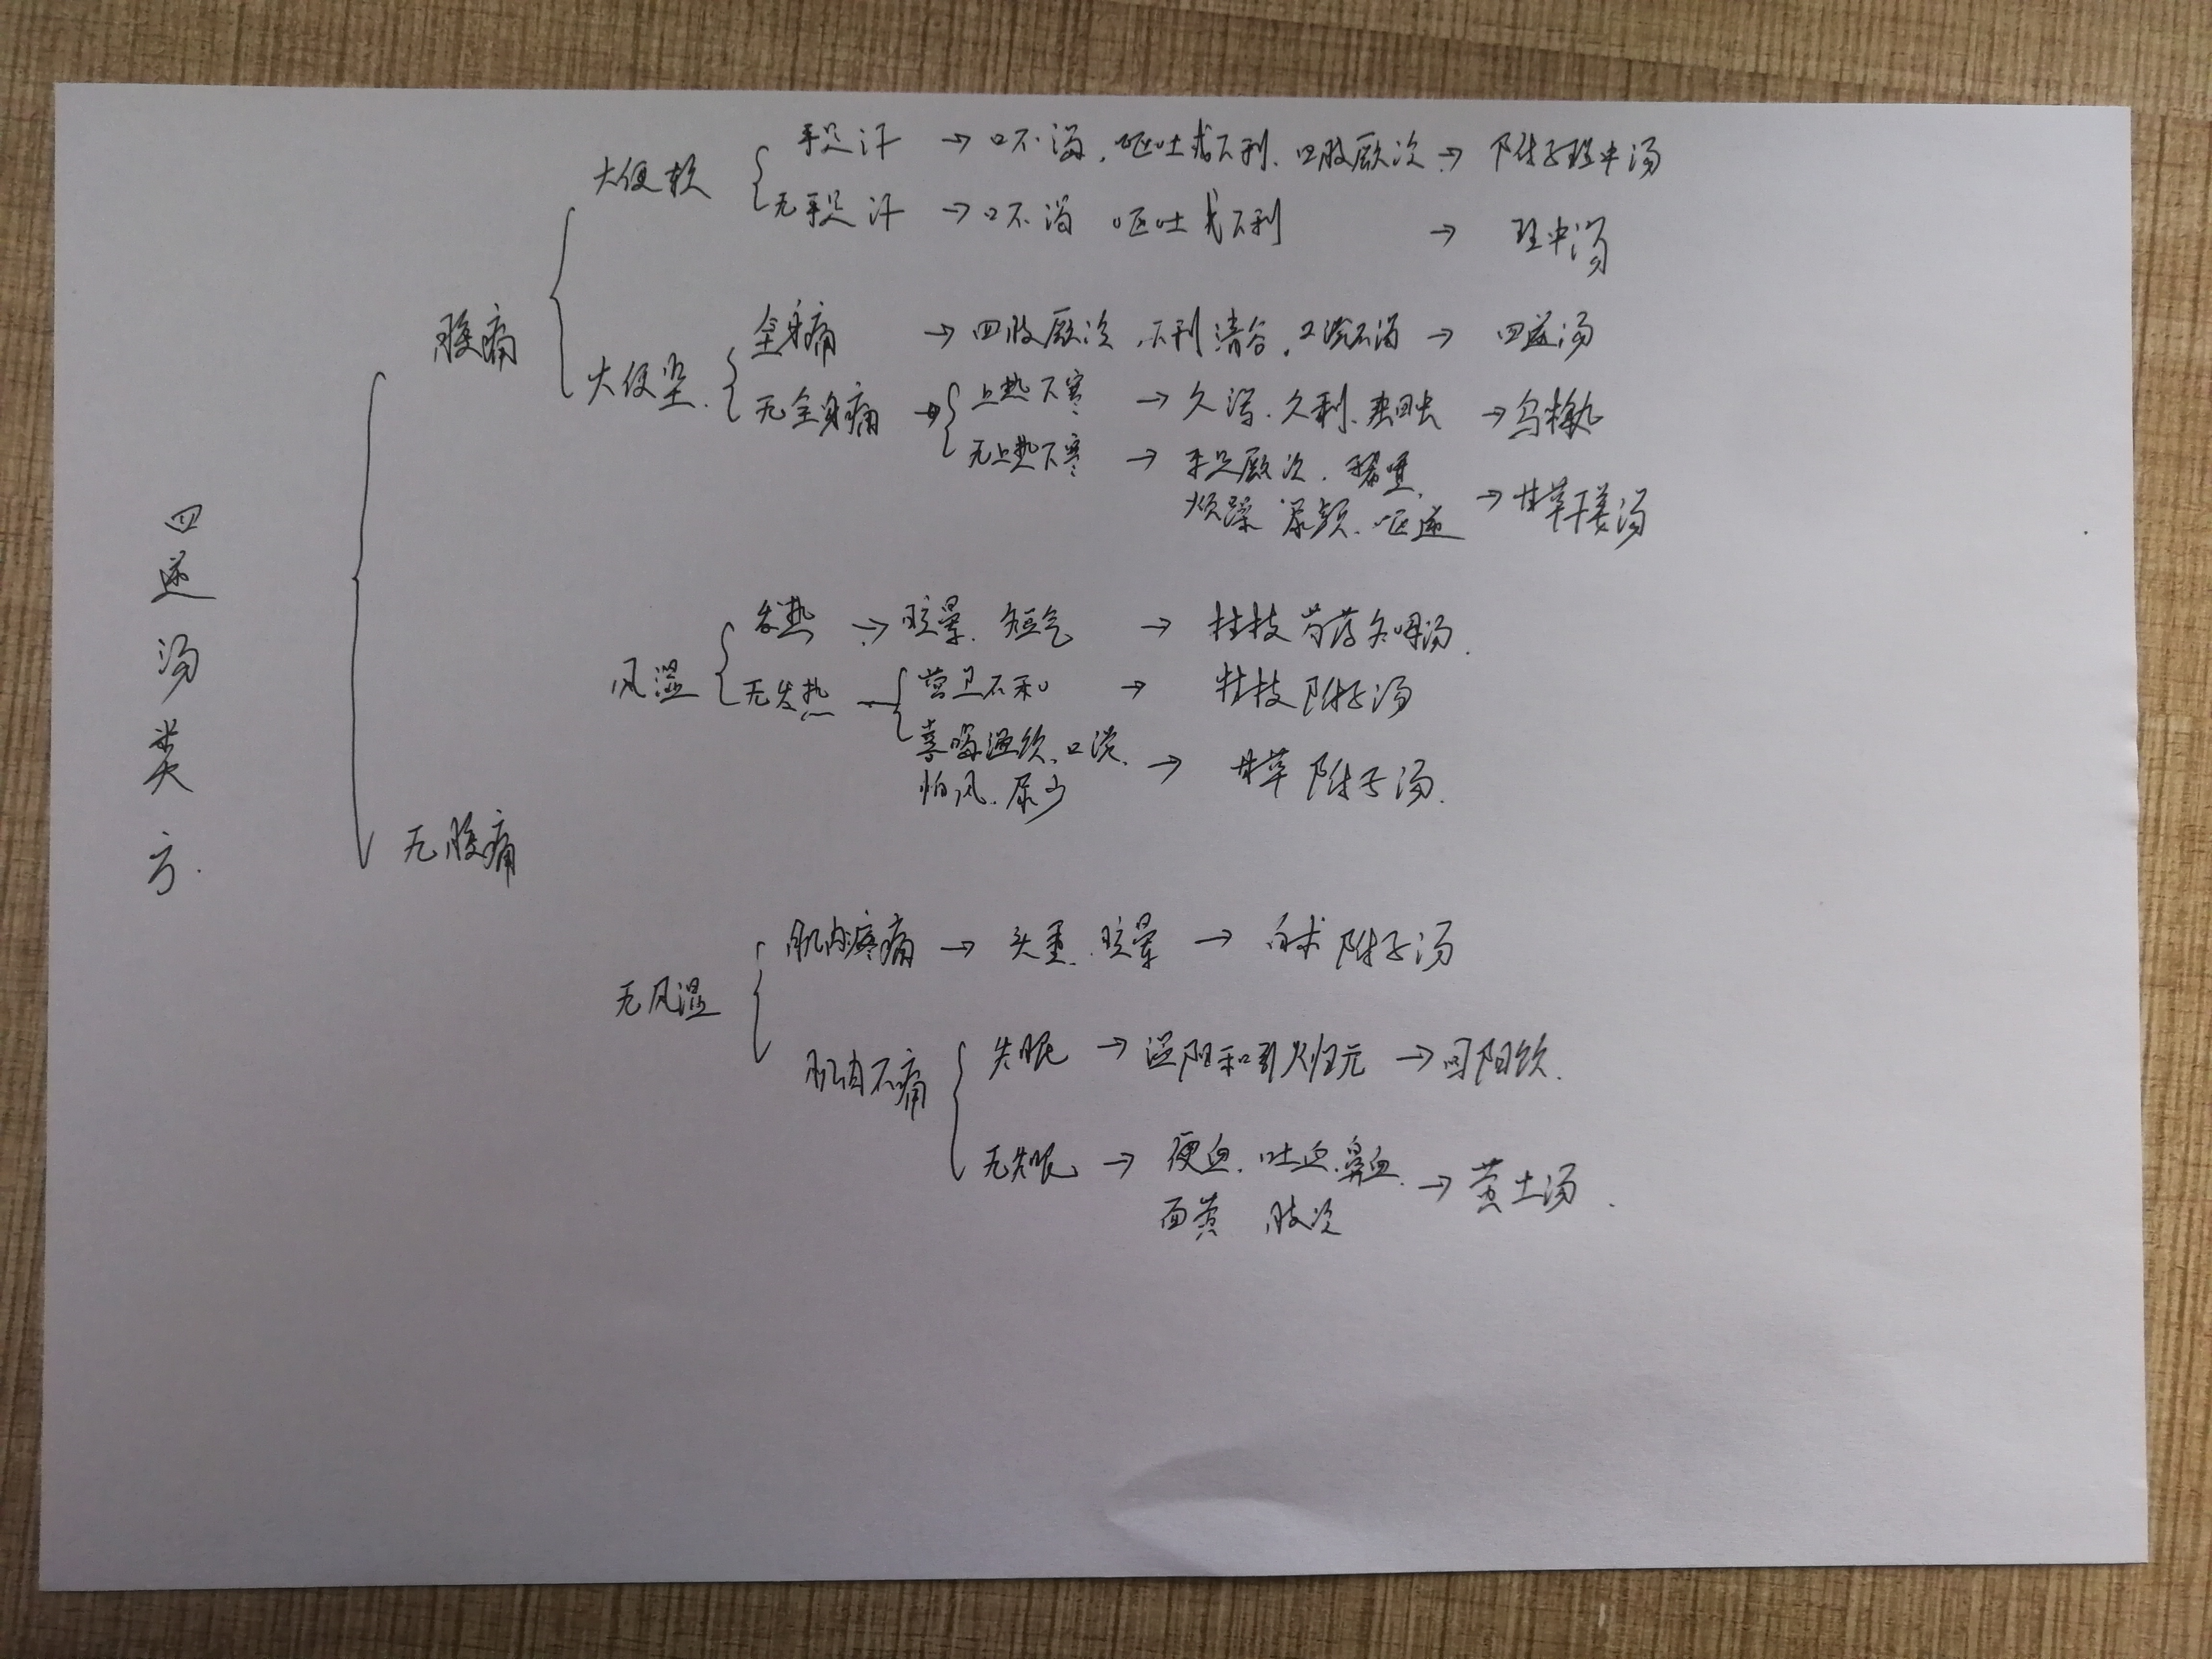 四逆汤类方.
腹痛
大便软
手足汗 → 口不渴, 呕吐或下利. 四肢厥冷 → 附子理中汤
无手足汗 → 口不渴 呕吐或下利 → 理中汤
大便坚.
全身痛 → 四肢厥冷, 下利清谷, 口淡不渴 → 四逆汤
无全身痛 →
上热下寒 → 久泻. 久利. 蛔虫 → 乌梅丸
无上热下寒 → 手足厥冷.
烦躁 尿频. 呕逆 → 甘草干姜汤
无腹痛
风湿
发热 → 眩晕. 短气 → 桂枝芍药知母汤.
无发热 →
营卫不和 → 桂枝附子汤
喜喝温饮. 口淡.
怕风. 尿少 → 甘草附子汤.
无风湿
肌肉疼痛 → 头重. 眩晕 → 白术附子汤
肌肉不痛
失眠 → 温阳和引火归元 → 回阳饮.
无失眠 → 便血. 吐血. 鼻血.
面黄 肢冷 → 黄土汤.